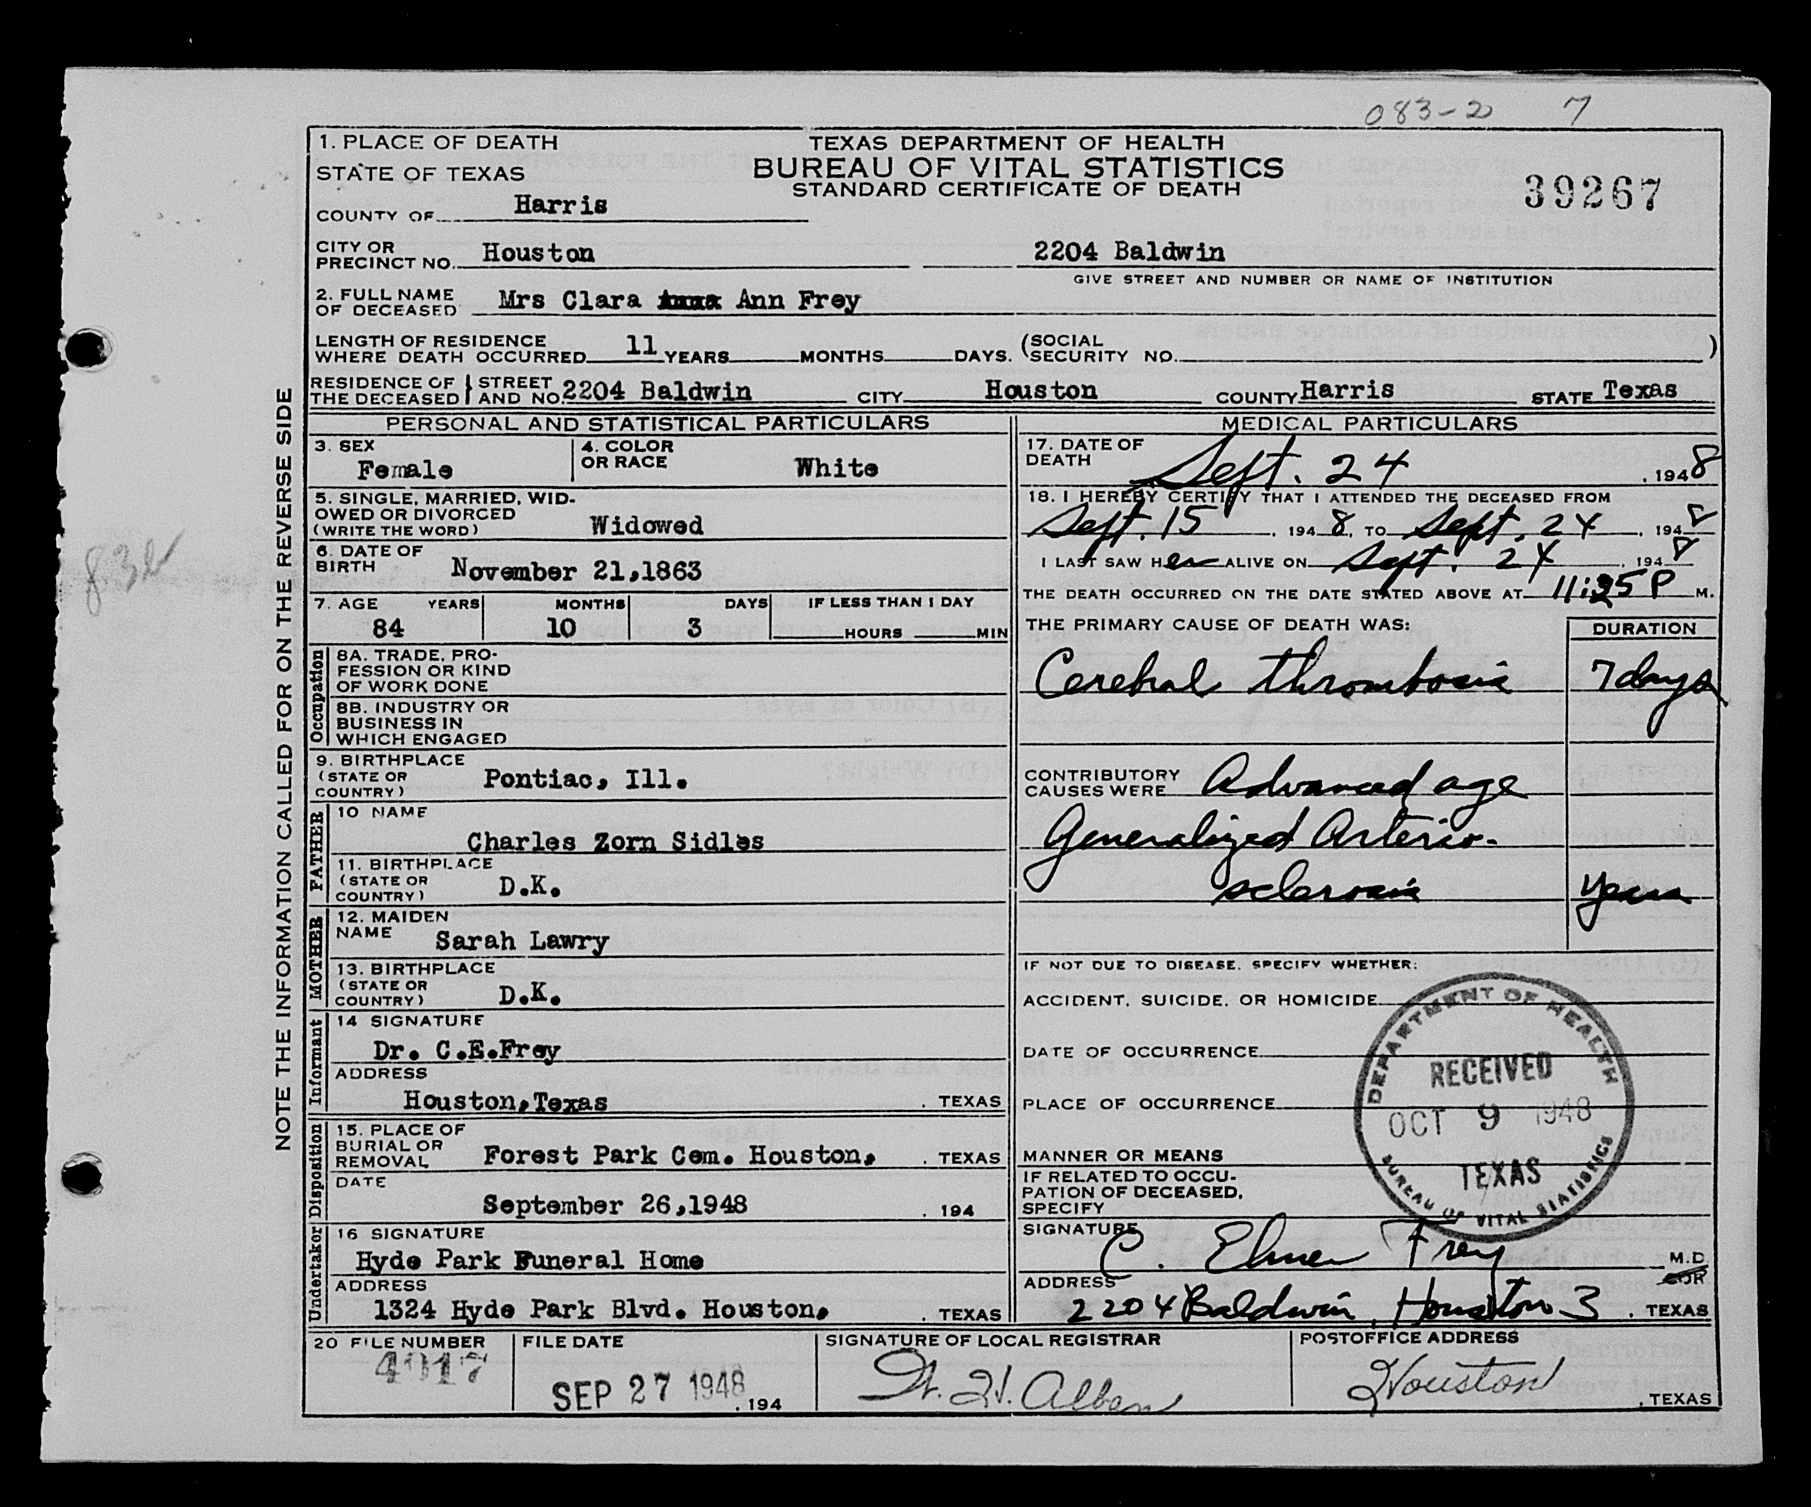 083-2 7
1. PLACE OF DEATH
STATE OF TEXAS
COUNTY OF Harris
TEXAS DEPARTMENT OF HEALTH
BUREAU OF VITAL STATISTICS
STANDARD CERTIFICATE OF DEATH
39267
CITY OR PRECINCT NO. Houston 2204 Baldwin
GIVE STREET AND NUMBER OR NAME OF INSTITUTION
2. FULL NAME OF DECEASED Mrs Clara Ann Frey
LENGTH OF RESIDENCE WHERE DEATH OCCURRED 11 YEARS MONTHS DAYS. (SOCIAL SECURITY NO. )
RESIDENCE OF THE DECEASED STREET AND NO. 2204 Baldwin CITY Houston COUNTY Harris STATE Texas
NOTE THE INFORMATION CALLED FOR ON THE REVERSE SIDE
PERSONAL AND STATISTICAL PARTICULARS
3. SEX Female
4. COLOR OR RACE White
5. SINGLE, MARRIED, WIDOWED OR DIVORCED (WRITE THE WORD) Widowed
6. DATE OF BIRTH November 21,1863
7. AGE YEARS MONTHS DAYS IF LESS THAN 1 DAY
84 10 3 HOURS MIN
Occupation
8A. TRADE, PROFESSION OR KIND OF WORK DONE
8B. INDUSTRY OR BUSINESS IN WHICH ENGAGED
9. BIRTHPLACE (STATE OR COUNTRY) Pontiac, Ill.
FATHER
10 NAME
Charles Zorn Sidles
11. BIRTHPLACE (STATE OR COUNTRY) D.K.
MOTHER
12. MAIDEN NAME Sarah Lawry
13. BIRTHPLACE (STATE OR COUNTRY) D.K.
Informant
14 SIGNATURE
Dr. C.E.Frey
ADDRESS
Houston,Texas . TEXAS
Disposition
15. PLACE OF BURIAL OR REMOVAL Forest Park Cem. Houston, . TEXAS
DATE
September 26,1948 . 194
Undertaker
16 SIGNATURE
Hyde Park Funeral Home
ADDRESS
1324 Hyde Park Blvd. Houston, . TEXAS
MEDICAL PARTICULARS
17. DATE OF DEATH Sept. 24 , 1948
18. I HEREBY CERTIFY THAT I ATTENDED THE DECEASED FROM
Sept. 15 , 1948, TO Sept. 24 , 1948
I LAST SAW HER ALIVE ON Sept. 24 , 1948
THE DEATH OCCURRED ON THE DATE STATED ABOVE AT 11:25 P M.
THE PRIMARY CAUSE OF DEATH WAS: DURATION
Cerebral thrombosis 7 days
CONTRIBUTORY CAUSES WERE Advanced age
Generalized Arterio-
sclerosis years
IF NOT DUE TO DISEASE, SPECIFY WHETHER:
ACCIDENT, SUICIDE, OR HOMICIDE
DATE OF OCCURRENCE
PLACE OF OCCURRENCE
MANNER OR MEANS
IF RELATED TO OCCUPATION OF DECEASED, SPECIFY
DEPARTMENT OF HEALTH
RECEIVED
OCT 9 1948
TEXAS
BUREAU OF VITAL STATISTICS
SIGNATURE C. Elmer Frey M.D. OR
ADDRESS 2204 Baldwin, Houston 3 . TEXAS
20 FILE NUMBER 4017
FILE DATE SEP 27 1948 , 194
SIGNATURE OF LOCAL REGISTRAR
POSTOFFICE ADDRESS Houston , TEXAS